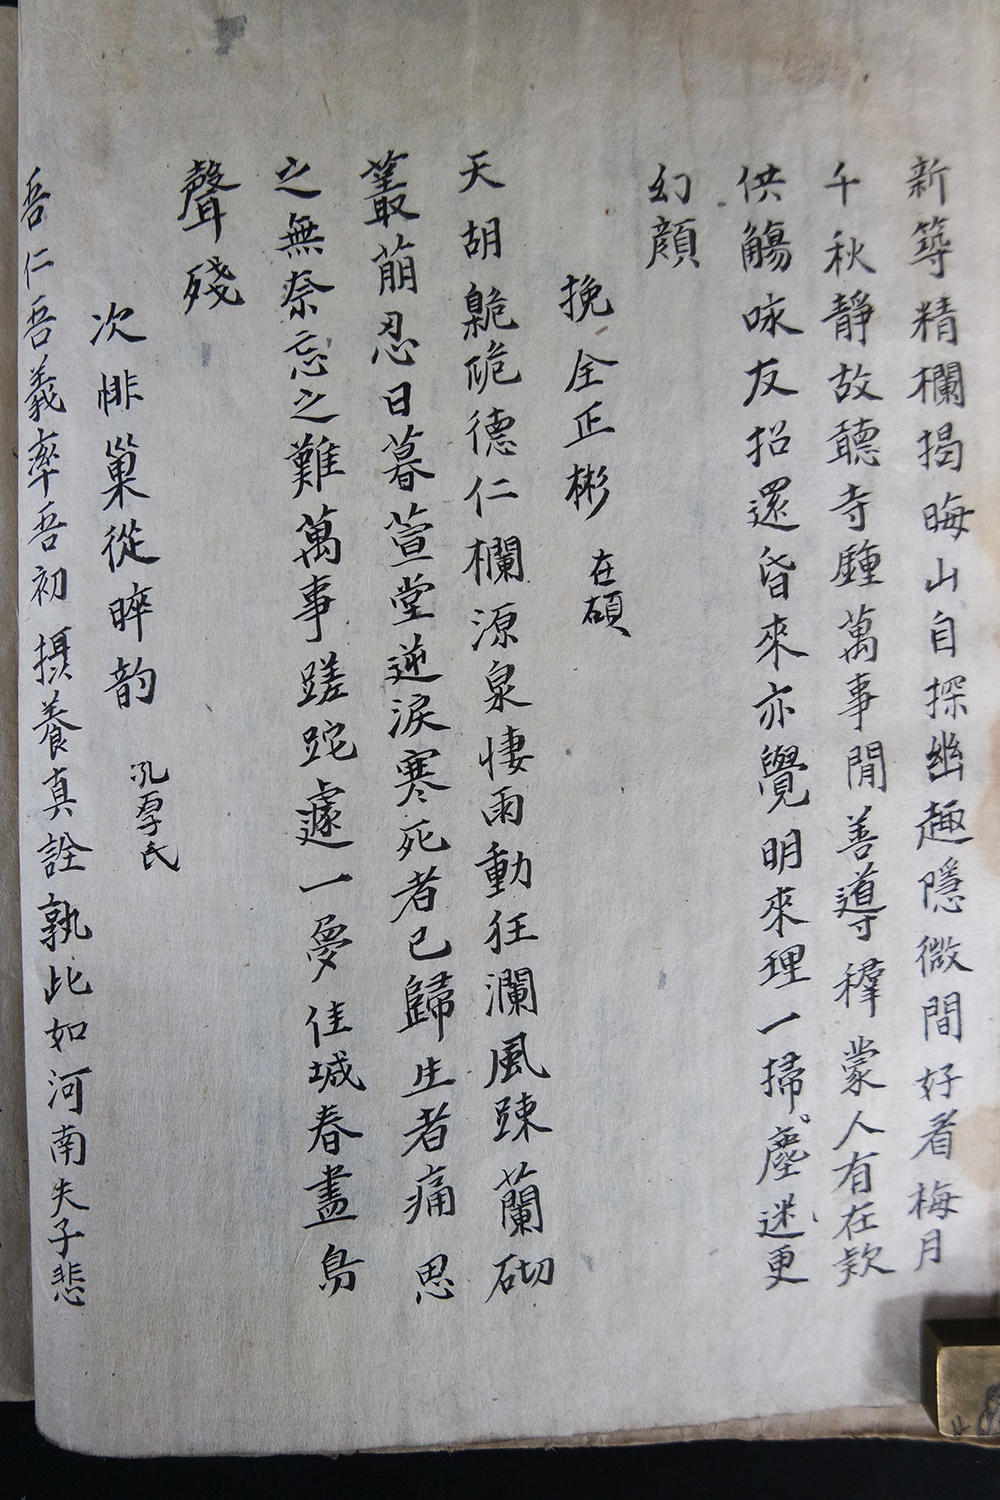 新築精欄揭晦山自探幽趣隱微間好看梅月
千秋靜故聽寺鍾萬事閒善導稺蒙人有在欵
供觴咏友招還昏來亦覺明來理一掃塵迷更
幻顔
挽全正彬 在碩
天胡臲卼德仁欄源泉悽雨動狂瀾風踈蘭砌
叢萠忍日暮萱堂逆淚寒死者已歸生者痛思
之無奈忘之難萬事蹉跎遽一夢佳城春盡鳥
聲殘
次悱巢從晬韵 孔羣氏
吾仁吾義率吾初攝養真詮孰比如河南失子悲